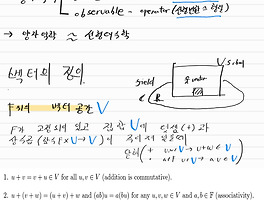 observable - operator (선형변환 = 행렬)
→ 양자역학 ≈ 선형대수학
벡터의 정의
field
V
F위의 벡터 공간 V
F가 고정되어 있고 집합 V에 덧셈(+)과
상수곱 (상수F×V→V)이
+ u,v∈V → u+w∈V
1. u + v = v + u ∈ V for all u, v ∈ V (addition is commutative).
2. u + (v + w) = (u + v) + w and (ab)u = a(bu) for any u, v, w ∈ V and a, b ∈ F (associativity).